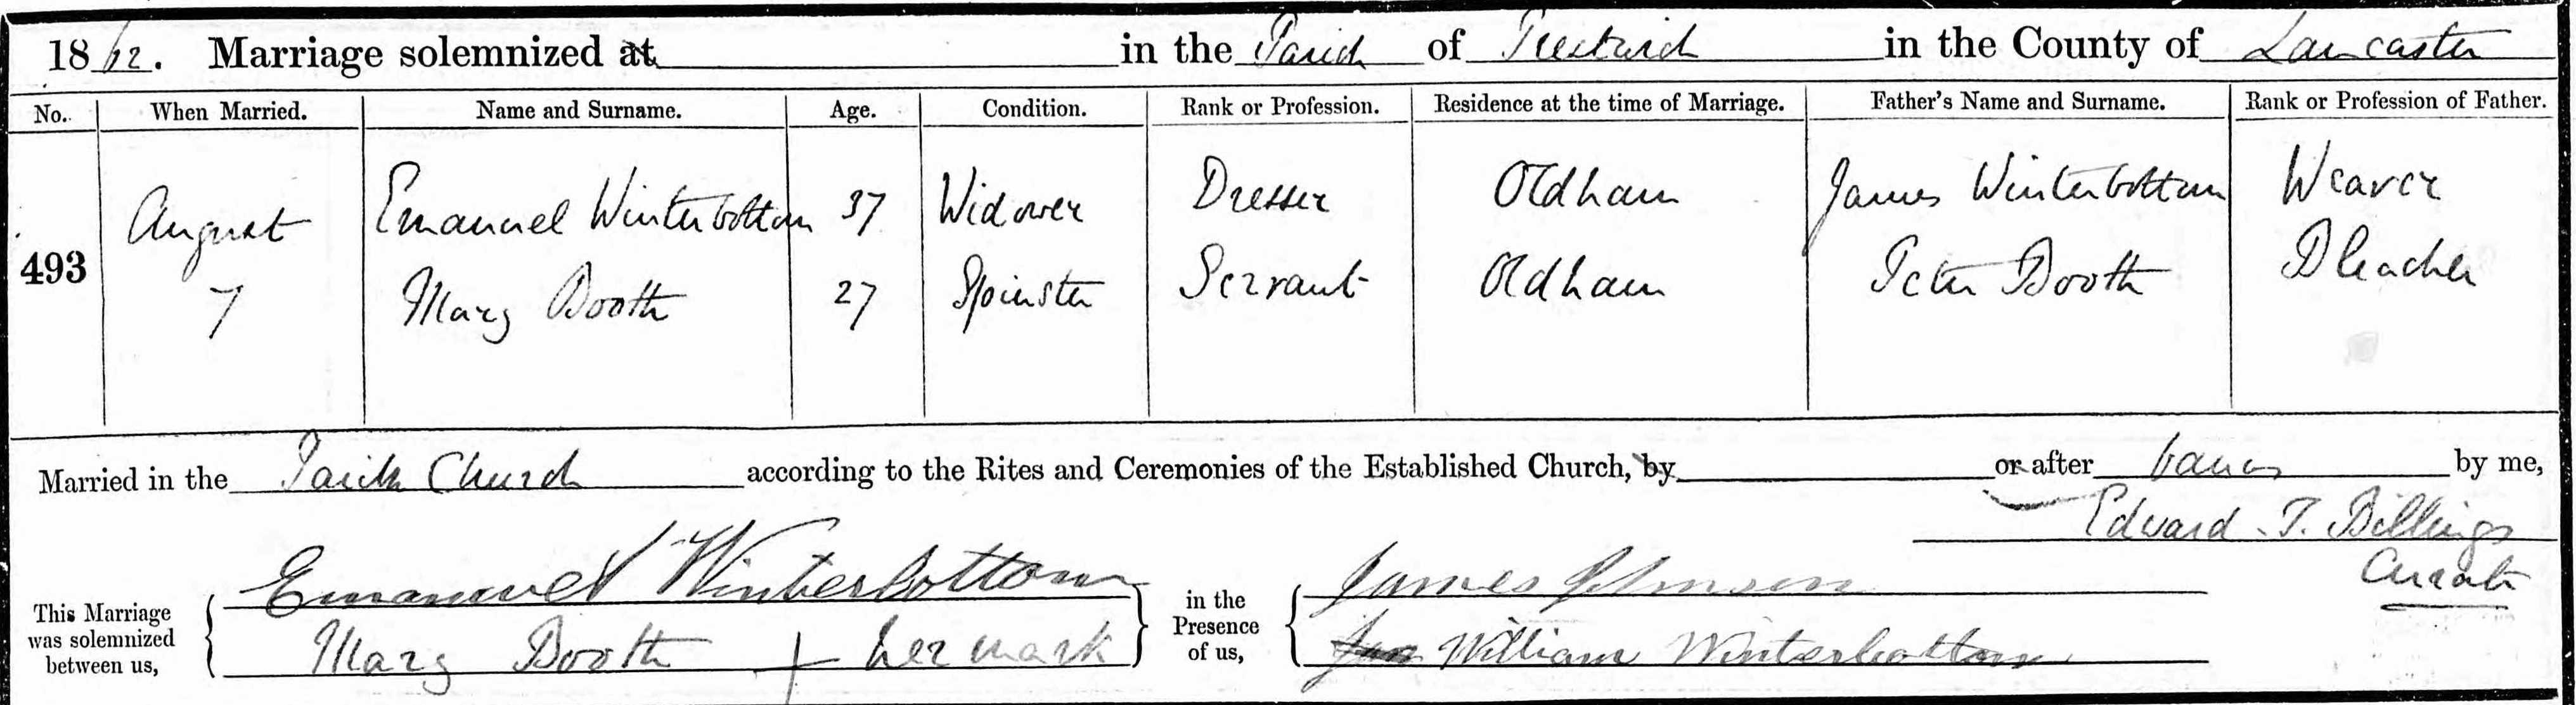 1862. Marriage solemnized at in the Parish of Prestwich in the County of Lancaster
No. When Married. Name and Surname. Age. Condition. Rank or Profession. Residence at the time of Marriage. Father's Name and Surname. Rank or Profession of Father.
493 August 7
Emanuel Winterbottom 37 Widower Dresser Oldham James Winterbottom Weaver
Mary Booth 27 Spinster Servant Oldham Peter Booth Bleacher
Married in the Parish Church according to the Rites and Ceremonies of the Established Church, by or after banns by me,
Edward T. Billings
Curate
This Marriage was solemnized between us,
Emanuel Winterbottom
Mary Booth + her mark
in the Presence of us,
James Johnson
William Winterbottom